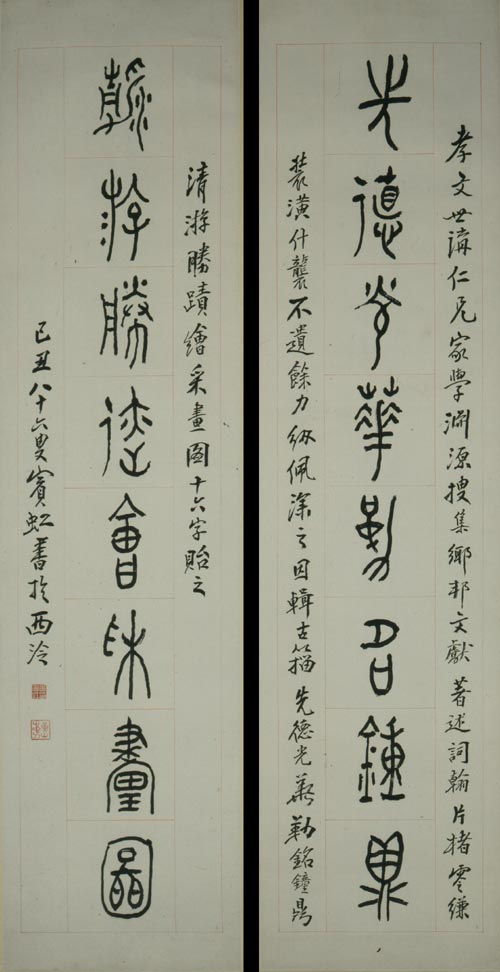 孝文世講仁兄家學淵源搜集鄉邦文獻著述詞翰片楮零縑
先德光華勒召鍾鼎
裝潢什襲不遺餘力紉佩深之因輯古籀先德光華勒銘鐘鼎
清游勝蹟繪采畫圖十六字貽之
游勝迹會采畫圖
己丑八十六叟賓虹書於西泠